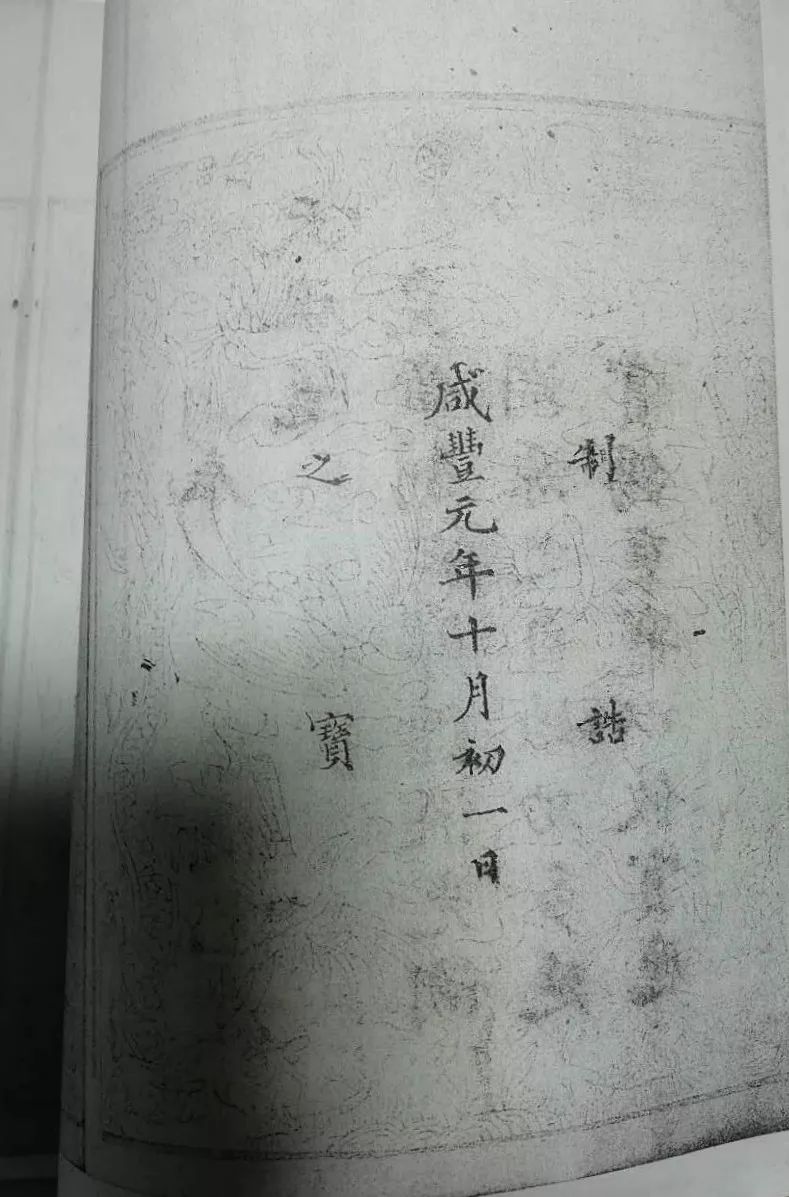 制誥
咸豐元年十月初一日
之寶